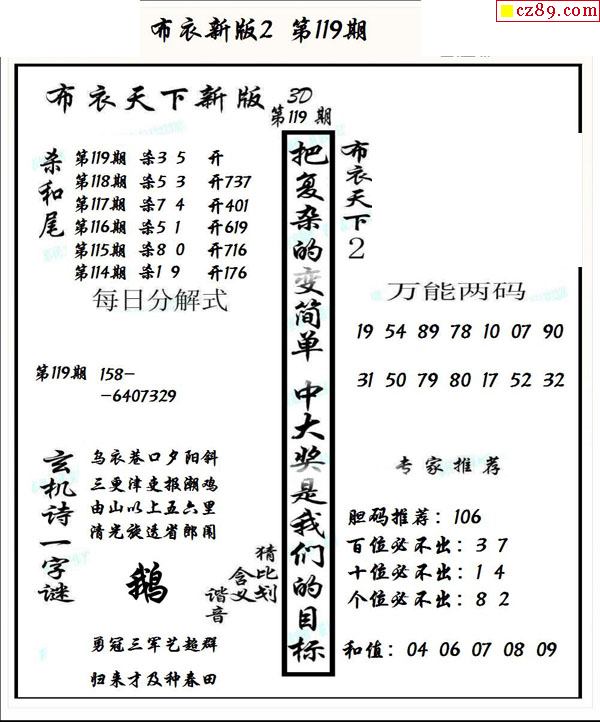 cz89.com
布衣新版2 第119期
布衣天下新版 3D
第119期
杀和尾
第119期 杀3 5 开
第118期 杀5 3 开737
第117期 杀7 4 开401
第116期 杀5 1 开619
第115期 杀8 0 开716
第114期 杀1 9 开176
每日分解式
第119期 158-
-6407329
玄机诗一字谜
乌衣巷口夕阳斜
三更津吏报潮鸡
由山以上五六里
清光旋透省郎闱
鹅
猜比划
含义
谐音
勇冠三军艺超群
归来才及种春田
把复杂的变简单 中大奖是我们的目标
布衣天下2
万能两码
19 54 89 78 10 07 90
31 50 79 80 17 52 32
专家推荐
胆码推荐：106
百位必不出：3 7
十位必不出：1 4
个位必不出：8 2
和值：04 06 07 08 09